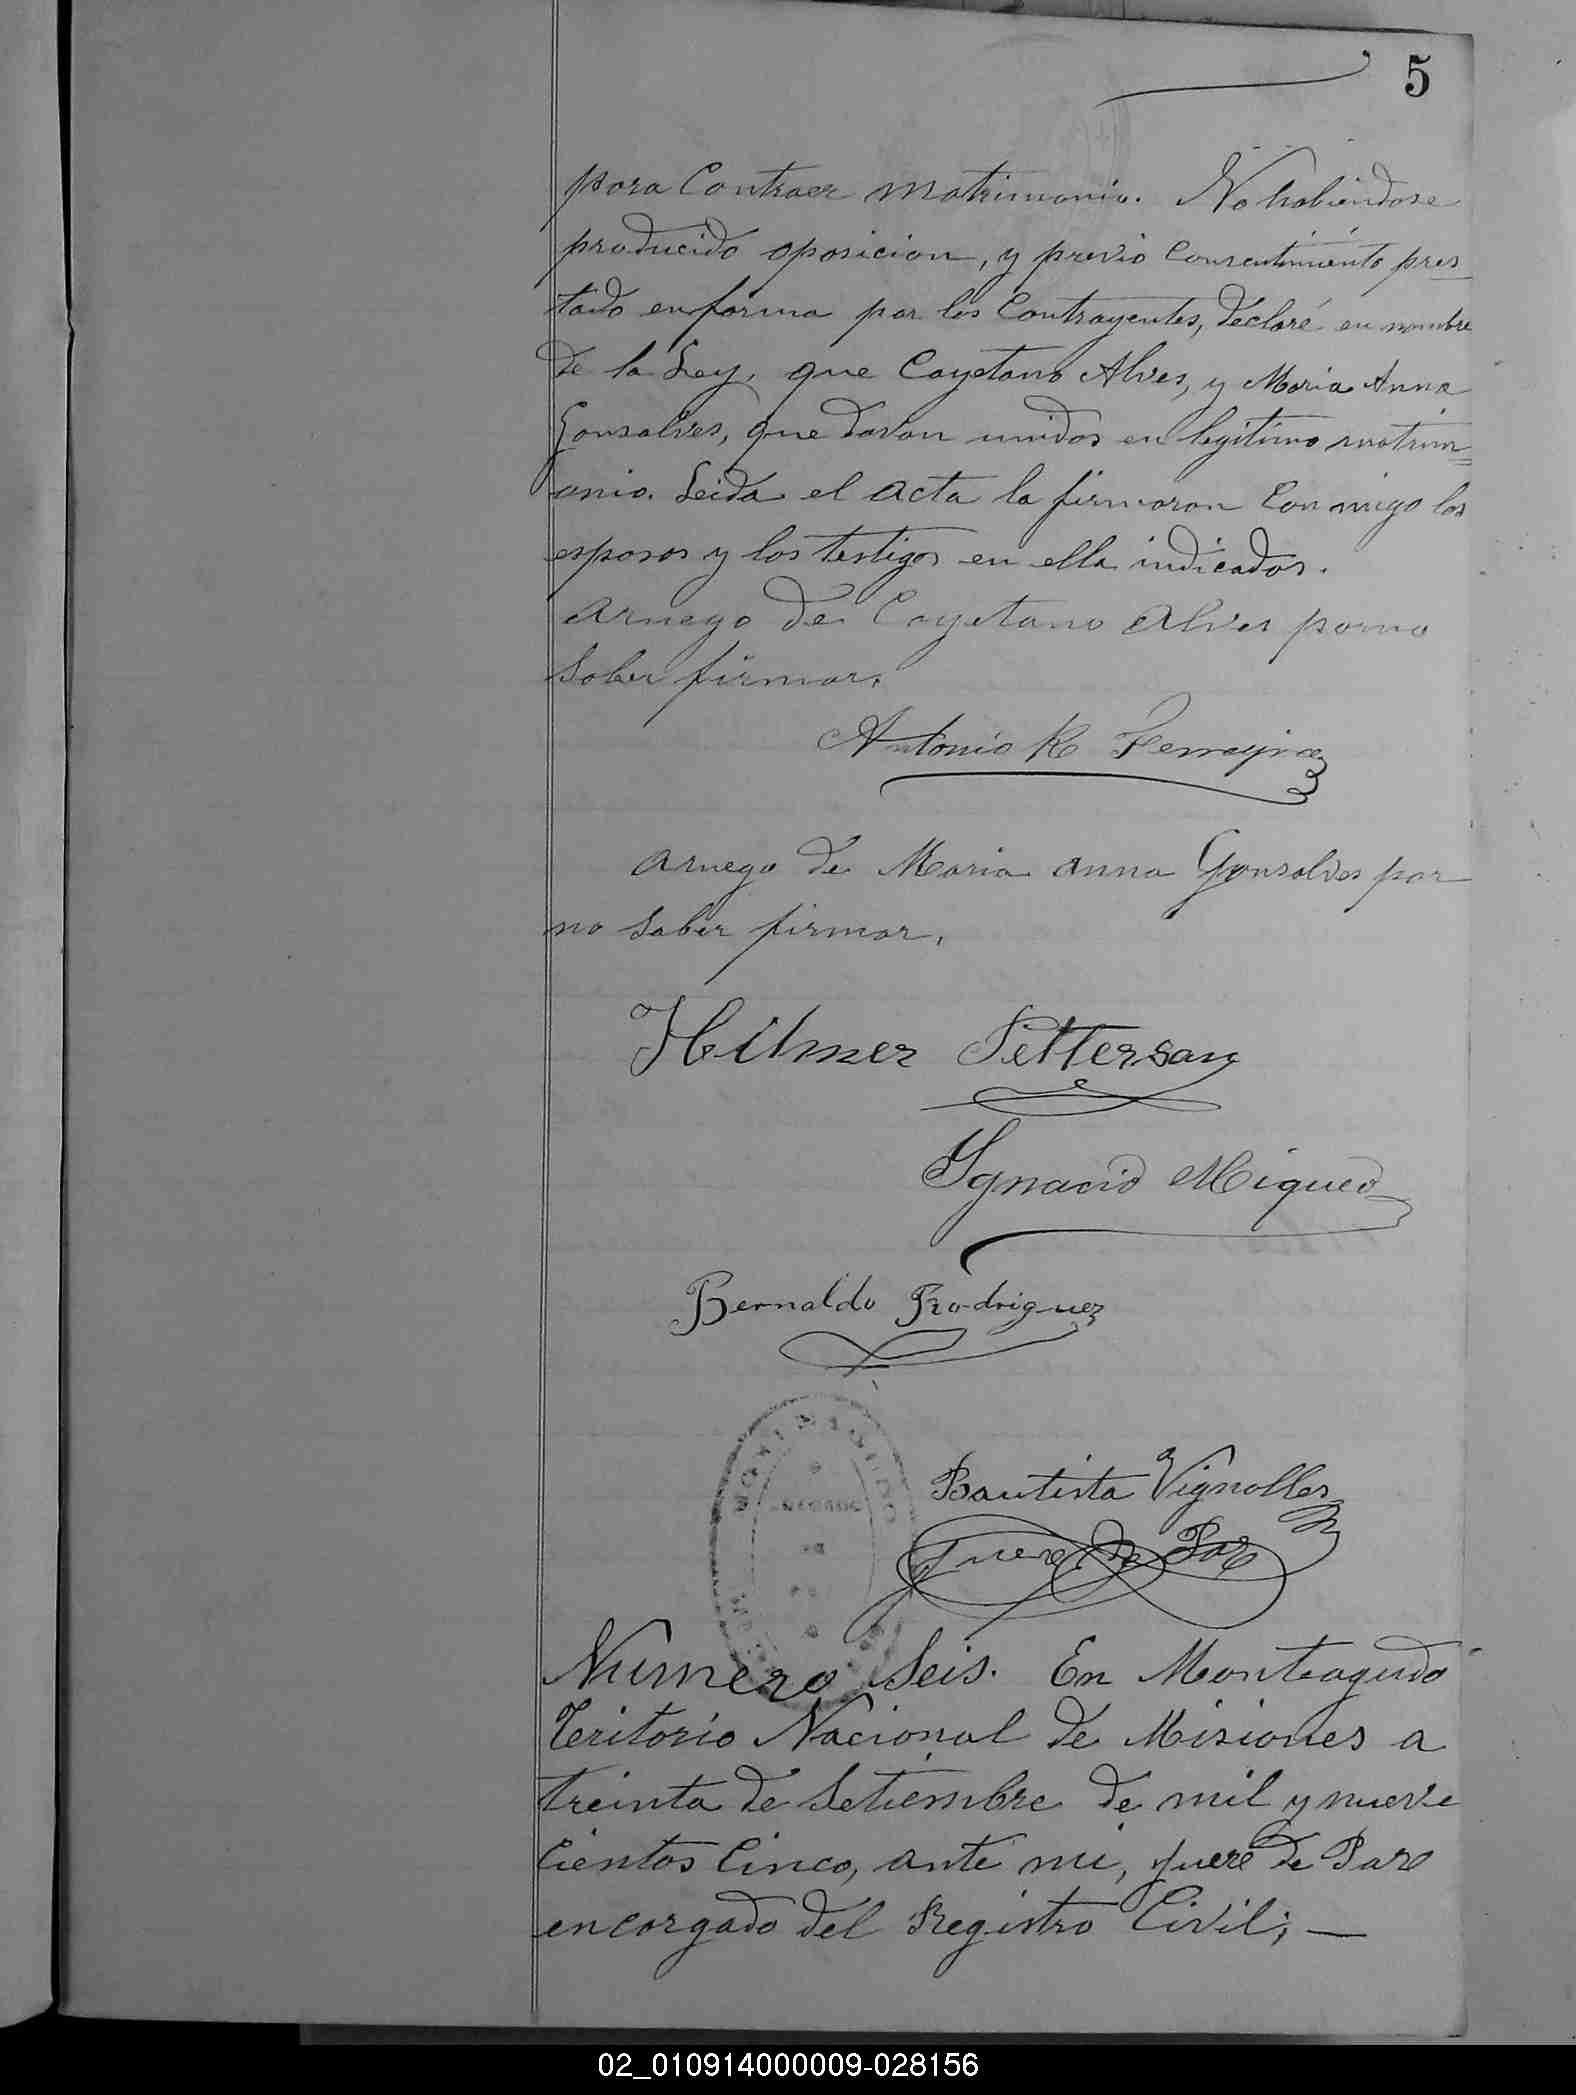 5
para Contraer matrimonio. No habiendose
producido oposicion, y previo Consentimiento pres
tado en forma por los Contrayentes, declaré en nombre
de la Ley, que Cayetano Alves, y Maria Anna
Gonsalves, quedavan unidos en legítimo matrim=
onio. Leida el acta la firmaron Conmigo los
esposos y los testigos en ella indicados.
Aruego de Cayetano Alves porno
Saber firmar.
Antonio R Ferreyra
Aruego de Maria Anna Gonsalves por
no Saber firmar.
Hilmer Petterson
Ygnacio Miqueo
Bernaldo Rodriguez
Bautista Vignolles
Juez de Paz
Numero Seis. En Monteagudo
Teritorio Nacional de Misiones a
treinta de Setiembre de mil y nueve
Cientos Cinco, ante mi, Juez de Paz
encargado del Registro Civil; —
02_010914000009-028156